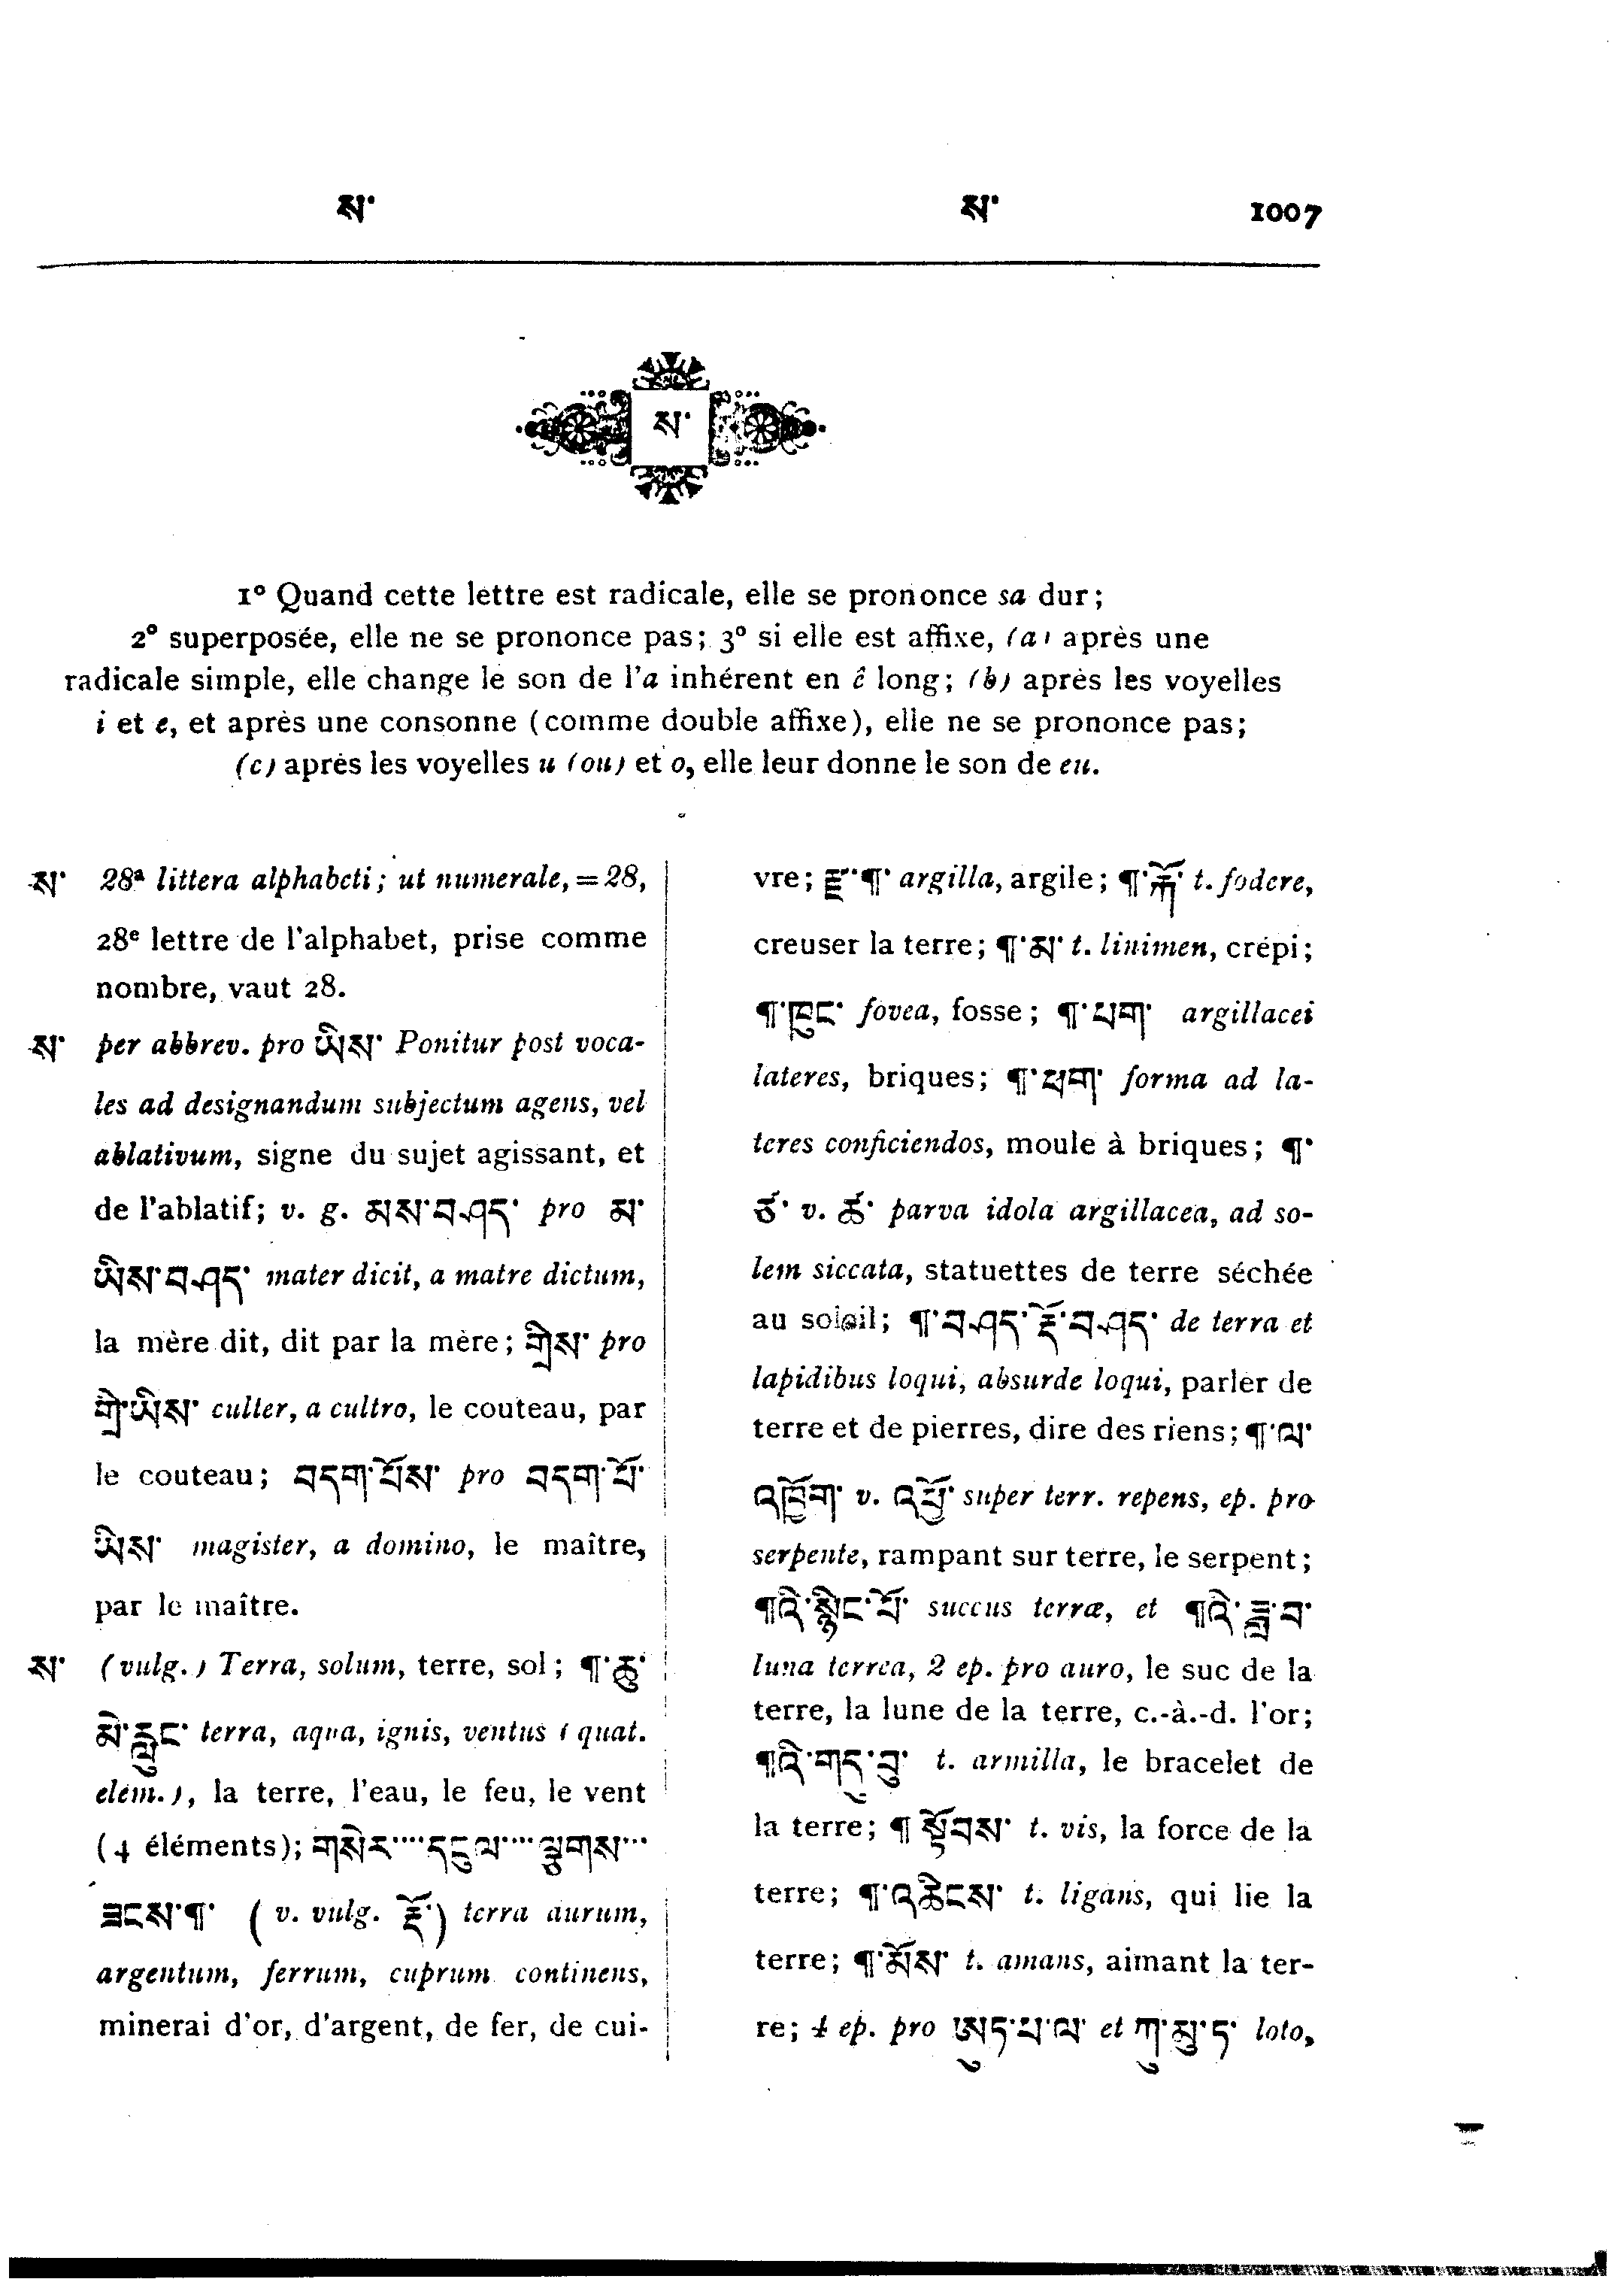 ས་ ས་ 1007
ས་
1º Quand cette lettre est radicale, elle se prononce sa dur;
2º superposée, elle ne se prononce pas; 3º si elle est affixe, (a) après une
radicale simple, elle change le son de l'a inhérent en ê long; (b) après les voyelles
i et e, et après une consonne (comme double affixe), elle ne se prononce pas;
(c) après les voyelles u (ou) et o, elle leur donne le son de eu.
ས་ 28ª littera alphabeti; ut numerale, = 28,
28e lettre de l'alphabet, prise comme
nombre, vaut 28.
ས་ per abbrev. pro ཡིས་ Ponitur post voca-
les ad designandum subjectum agens, vel
ablativum, signe du sujet agissant, et
de l'ablatif; v. g. མས་བཤད་ pro མ་
ཡིས་བཤད་ mater dicit, a matre dictum,
la mère dit, dit par la mère; གྲིས་ pro
གྲི་ཡིས་ culter, a cultro, le couteau, par
le couteau; བདག་པོས་ pro བདག་པོ་
ཡིས་ magister, a domino, le maître,
par le maître.
ས་ (vulg.) Terra, solum, terre, sol; ¶་ཆུ་
མེ་རླུང་ terra, aqua, ignis, ventus (quat.
elem.), la terre, l'eau, le feu, le vent
(4 éléments); གསེར་···དངུལ་···ལྕགས་··
ཟངས་¶་ (v. vulg. རྡོ་) terra aurum,
argentum, ferrum, cuprum continens,
minerai d'or, d'argent, de fer, de cui-
vre; རྫ་¶་ argilla, argile; ¶་རྐོ་ t. fodere,
creuser la terre; ¶་མ་ t. linimen, crépi;
¶་ཁུང་ fovea, fosse; ¶་པག་ argillacei
lateres, briques; ¶་པག་ forma ad la-
teres conficiendos, moule à briques; ¶་
ཙ་ v. ཚ་ parva idola argillacea, ad so-
lem siccata, statuettes de terre séchée
au soleil; ¶་བཤད་རྡོ་བཤད་ de terra et
lapidibus loqui, absurde loqui, parler de
terre et de pierres, dire des riens; ¶་ལ་
འཁྲོག་ v. འཕྱོ་ super terr. repens, ep. pro
serpente, rampant sur terre, le serpent;
¶འི་སྙིང་པོ་ succus terræ, et ¶འི་ཟླ་བ་
luna terrea, 2 ep. pro auro, le suc de la
terre, la lune de la terre, c.-à.-d. l'or;
¶འི་གདུ་བུ་ t. armilla, le bracelet de
la terre; ¶ སྟོབས་ t. vis, la force de la
terre; ¶་འཆིངས་ t. ligans, qui lie la
terre; ¶་མོས་ t. amans, aimant la ter-
re; 4 ep. pro ཨུད་པ་ལ་ et ཀུ་མུ་ད་ loto,